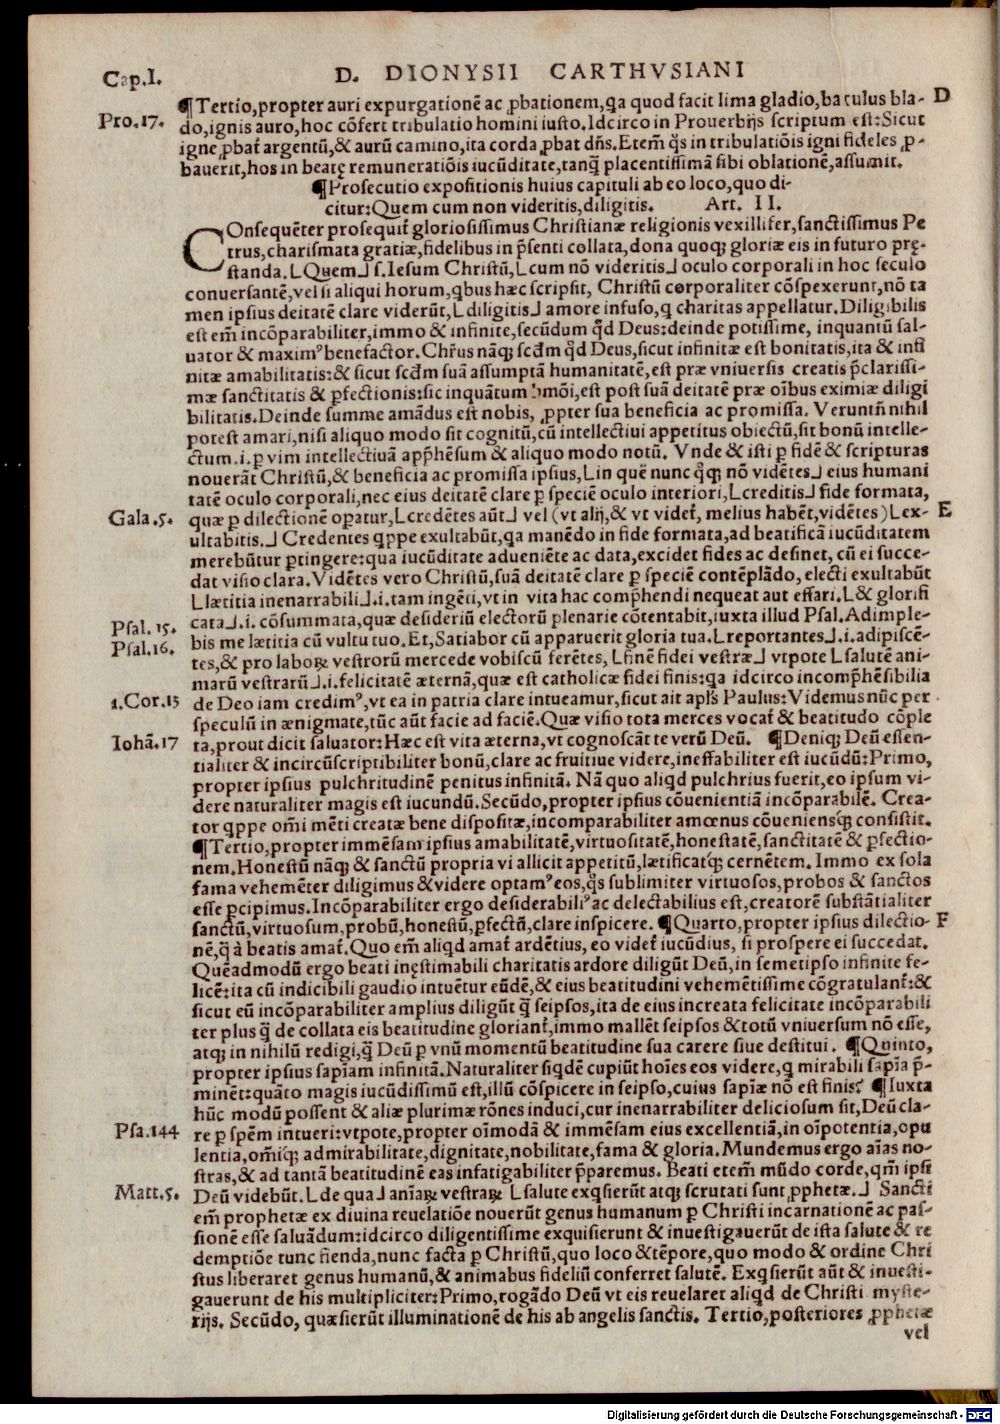 Cap.I.
D. DIONYSII CARTHVSIANI
¶Tertio,propter auri expurgationē ac ꝓbationem,qa quod facit lima gladio,baculus bla- D
Pro.17. do,ignis auro,hoc cōfert tribulatio homini iusto.Idcirco in Prouerbijs scriptum est:Sicut
igne ꝓbat̃ argentū,& aurū camino,ita corda ꝓbat dn̄s.Etem̄ q̄s in tribulatiōis igni fideles ꝓ-
bauerit,hos in beatę remuneratiōis iucūditate,tanq̄ placentissimā sibi oblationē,assumit.
¶Prosecutio expositionis huius capituli ab eo loco,quo di-
citur:Quem cum non videritis,diligitis. Art. II.
COnsequēter prosequit̃ gloriosissimus Christianæ religionis vexillifer,sanctissimus Pe
trus,charismata gratiæ,fidelibus in p̄senti collata,dona quoqꝫ gloriæ eis in futuro prę-
standa.⌊Quem⌋ s.Iesum Christū,⌊cum nō videritis⌋ oculo corporali in hoc seculo
conuersantē,vel si aliqui horum,qbus hæc scripsit, Christū corporaliter cōspexerunt,nō ta
men ipsius deitatē clare viderūt,⌊diligitis⌋ amore infuso,q charitas appellatur.Diligibilis
est em̄ incōparabiliter,immo & infinite,secūdum qd̄ Deus:deinde potissime, inquantū sal-
uator & maximꝰ benefactor.Chr̄us nāqꝫ scd̄m qd̄ Deus,sicut infinitæ est bonitatis,ita & infi
nitæ amabilitatis:& sicut scd̄m suā assumptā humanitatē,est præ vniuersis creatis p̄clarissi-
mæ sanctitatis & ꝑfectionis:sic inquātum hmōi,est post suā deitatē præ oībus eximiæ diligi
bilitatis.Deinde summe amādus est nobis, ꝓpter sua beneficia ac promissa. Veruntñ nihil
potest amari,nisi aliquo modo sit cognitū,cū intellectiui appetitus obiectū,sit bonū intelle-
ctum.i.ꝑ vim intellectiuā appħēsum & aliquo modo notū. Vnde & isti ꝑ fidē & scripturas
nouerāt Christū,& beneficia ac promissa ipsius,⌊in quē nunc q̊qꝫ nō vidētes⌋ eius humani
tatē oculo corporali,nec eius deitatē clare ꝑ speciē oculo interiori,⌊creditis⌋ fide formata,
Gala.5. quæ ꝑ dilectionē oꝑatur,⌊credētes aūt⌋ vel (vt alij,& vt videt̃, melius habēt,vidētes)⌊ex- E
ultabitis.⌋ Credentes qppe exultabūt,qa manēdo in fide formata,ad beatificā iucūditatem
merebūtur ꝑtingere:qua iucūditate adueniēte ac data,excidet fides ac definet, cū ei succe-
dat visio clara.Vidētes vero Christū,suā deitatē clare ꝑ speciē contēplādo, electi exultabūt
⌊lætitia inenarrabili⌋.i.tam ingēti,vt in vita hac comp̄hendi nequeat aut effari.⌊& glorifi
cata⌋.i. cōsummata,quæ desideriū electorū plenarie cōtentabit,iuxta illud Psal.Adimple-
Psal.15. bis me lætitia cū vultu tuo.Et,Satiabor cū apparuerit gloria tua.⌊reportantes⌋.i.adipiscē-
Psal.16. tes,& pro laboꝝ vestrorū mercede vobiscū ferētes, ⌊finē fidei vestræ⌋ vtpote ⌊salutē ani-
marū vestrarū⌋.i.felicitatē æternā,quæ est catholicæ fidei finis:qa idcirco incomp̄hēsibilia
1.Cor.13 de Deo iam credimꝰ,vt ea in patria clare intueamur,sicut ait apl̄s Paulus:Videmus nūc per
speculū in ænigmate,tūc aūt facie ad faciē.Quæ visio tota merces vocat̃ & beatitudo cōple
Iohā.17 ta,prout dicit saluator:Hæc est vita æterna,vt cognoscāt te verū Deū. ¶Deniqꝫ Deū essen-
tialiter & incircūscriptibiliter bonū,clare ac fruitiue videre,ineffabiliter est iucūdū:Primo,
propter ipsius pulchritudinē penitus infinitā. Nā quo aliqd pulchrius fuerit,eo ipsum vi-
dere naturaliter magis est iucundū.Secūdo,propter ipsius cōuenientiā incōparabilē. Crea-
tor qppe om̄i mēti creatæ bene dispositæ,incomparabiliter amœnus cōueniensqꝫ consistit.
¶Tertio,propter immēsam ipsius amabilitatē,virtuositatē,honestatē,sanctitatē & ꝑfectio-
nem.Honestū nāqꝫ & sanctū propria vi allicit appetitū,lætificatqꝫ cernētem. Immo ex sola
fama vehemēter diligimus & videre optamꝰ eos,q̄s sublimiter virtuosos,probos & sanctos
esse ꝑcipimus.Incōparabiliter ergo desiderabiliꝰ ac delectabilius est,creatorē substātialiter
sanctū,virtuosum,probū,honestū,ꝑfectū,clare inspicere. ¶Quarto,propter ipsius dilectio- F
nē,q̄ à beatis amat̃.Quo em̄ aliqd amat̃ ardētius, eo videt̃ iucūdius, si prospere ei succedat.
Quēadmodū ergo beati inęstimabili charitatis ardore diligūt Deū,in semetipso infinite fe-
licē:ita cū indicibili gaudio intuētur eūdē,& eius beatitudini vehemētissime cōgratulant̃:&
sicut eū incōparabiliter amplius diligūt q̄ seipsos,ita de eius increata felicitate incōparabili
ter plus q̄ de collata eis beatitudine gloriant̃,immo mallēt seipsos & totū vniuersum nō esse,
atqꝫ in nihilū redigi,q̄ Deū ꝑ vnū momentū beatitudine sua carere siue destitui. ¶Quinto,
propter ipsius sapīam infinitā.Naturaliter siqdē cupiūt hoīes eos videre,q mirabili sapīa p̄-
minēt:quāto magis iucūdissimū est,illū cōspicere in seipso,cuius sapīæ nō est finis? ¶Iuxta
hūc modū possent & aliæ plurimæ rōnes induci,cur inenarrabiliter deliciosum sit,Deū cla-
Psa.144 re ꝑ spēm intueri:vtpote,propter oīmodā & immēsam eius excellentiā,in oīpotentia,opu
lentia,om̄iqꝫ admirabilitate,dignitate,nobilitate,fama & gloria. Mundemus ergo aīas no-
stras,& ad tantā beatitudinē eas infatigabiliter p̄paremus. Beati etem̄ mūdo corde,qm̄ ipsi
Matt.5. Deū videbūt.⌊de qua⌋ anīaꝝ vestraꝝ ⌊salute exqsierūt atqꝫ scrutati sunt ꝓphetæ.⌋ Sancti
em̄ prophetæ ex diuina reuelatiōe nouerūt genus humanum ꝑ Christi incarnationē ac pas-
sionē esse saluādum:idcirco diligentissime exquisierunt & inuestigauerūt de ista salute & re
demptiōe tunc fienda,nunc facta ꝑ Christū,quo loco & tēpore,quo modo & ordine Chri
stus liberaret genus humanū,& animabus fideliū conferret salutē. Exqsierūt aūt & inuesti-
gauerunt de his multipliciter:Primo,rogādo Deū vt eis reuelaret aliqd de Christi myste-
rijs. Secūdo, quæsierūt illuminationē de his ab angelis sanctis. Tertio,posteriores ꝓphetæ
vel
Digitalisierung gefördert durch die Deutsche Forschungsgemeinschaft - DFG